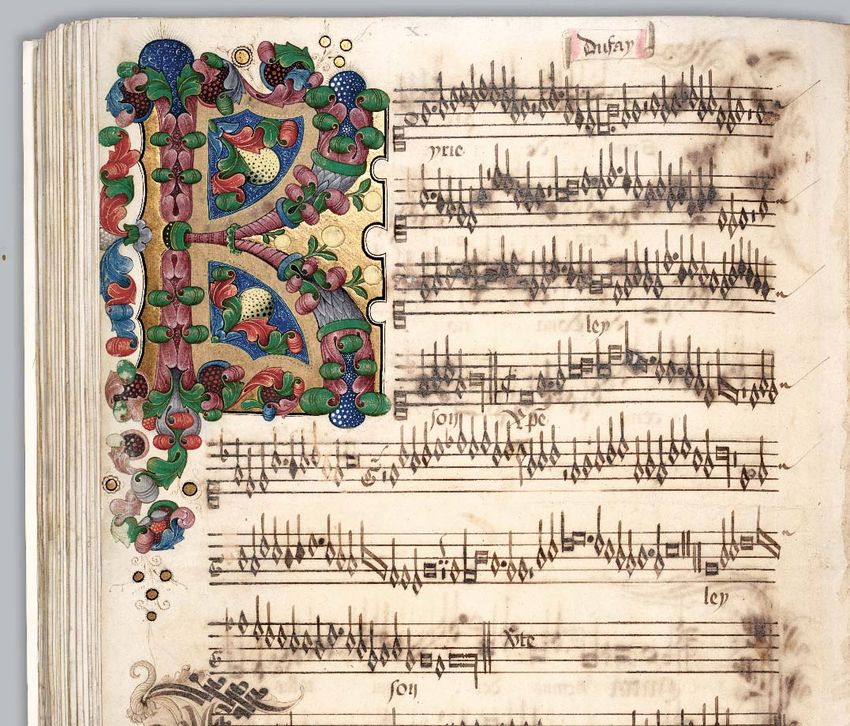 x.
Dufay
K
yrie
ley
son Xpe
ley
son Xpe